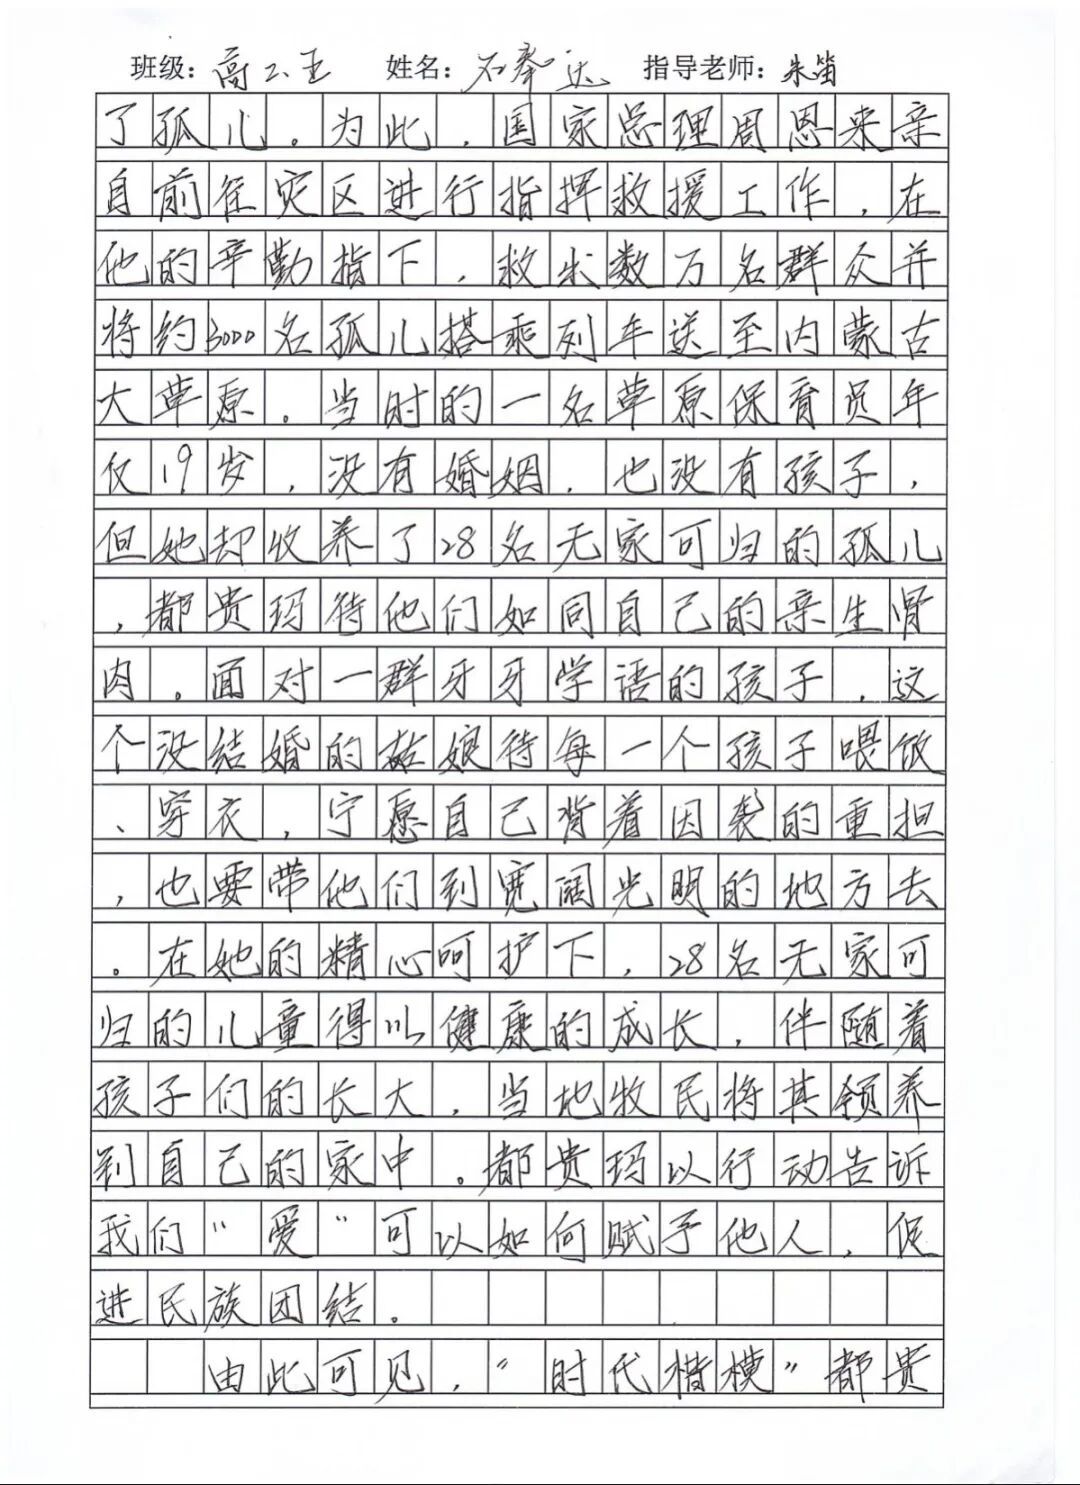 班级：高二、王 姓名：石奉达 指导老师：朱笛
了孤儿。为此，国家总理周恩来亲
自前往灾区进行指挥救援工作，在
他的辛勤指下，救出数万名群众并
将约3000名孤儿搭乘列车送至内蒙古
大草原。当时的一名草原保育员年
仅19岁，没有婚姻．也没有孩子，
但她却收养了28名无家可归的孤儿
，都贵玛待他们如同自己的亲生骨
肉。面对一群牙牙学语的孩子，这
个没结婚的姑娘待每一个孩子喂饭
、穿衣，宁愿自己背着因袭的重担
，也要带他们到宽阔光明的地方去
。在她的精心呵护下，28名无家可
归的儿童得以健康的成长，伴随着
孩子们的长大，当地牧民将其领养
到自己的家中。都贵玛以行动告诉
我们“爱”可以如何赋予他人，促
进民族团结。
由此可见，“时代楷模”都贵